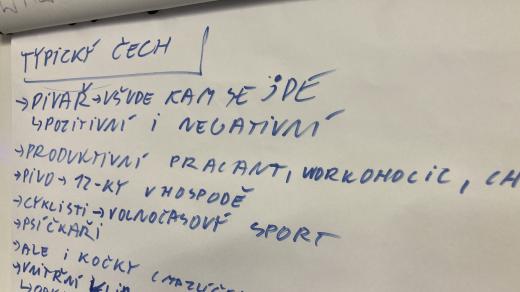 TYPICKÝ ČECH
→ PIVAŘ → VŠUDE KAM SE JDE
↳ POZITIVNÍ I NEGATIVNÍ
→ PRODUKTIVNÍ PRACANT, WORKOHOLIC, CH
→ PIVO → 12-KY V HOSPODĚ
→ CYKLISTI → VOLNOČASOVÝ SPORT
→ PSÍČKAŘI
→ ALE I KOČKY
→ VNITŘNÍ